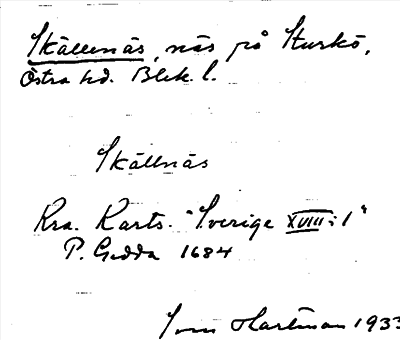 Skällenäs, näs på Sturkö,
Östra hd. Blek. l.
Skällnäs
Kra. Karts. "Sverige XVIII:1"
P. Gedda 1684
Hartman 1933